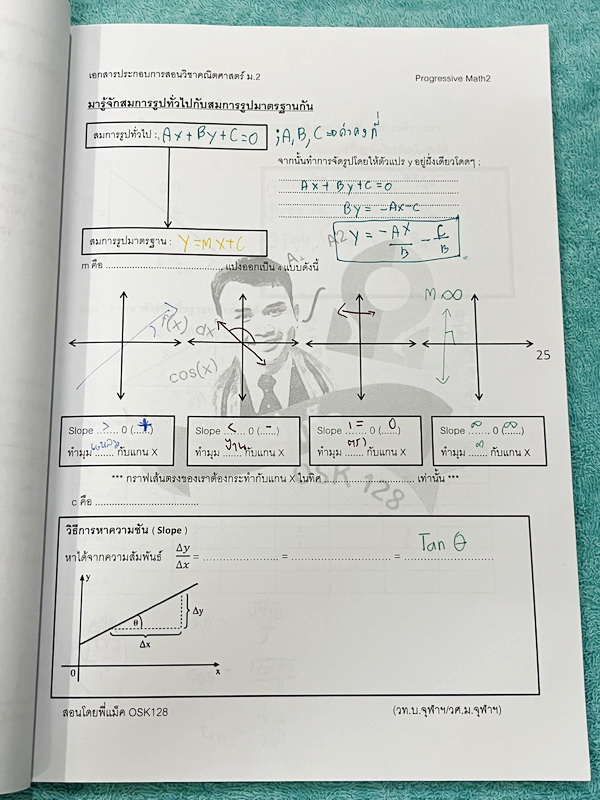 เอกสารประกอบการสอนวิชาคณิตศาสตร์ ม.2 Progressive Math2
มารู้จักสมการรูปทั่วไปกับสมการรูปมาตรฐานกัน
สมการรูปทั่วไป : Ax + By + C = 0 ; A, B, C
จากนั้นทำการจัดรูปโดยให้ตัวแปร y อยู่ฝั่งเดียวโดดๆ ;
Ax + By + C = 0
By = -Ax - C
Y = -Ax/B - C/B
สมการรูปมาตรฐาน : Y = mx + C
m คือ ........................................ แบ่งออกเป็น 4 แบบดังนี้
f(x) dx
cos(x)
M ∞
25
Slope ...>... 0 (...+...) Slope ...<... 0 (...-...) Slope ...=... 0 (...0...) Slope ...∞... 0 (...∞...)
ทำมุม แหลม กับแกน X ทำมุม ป้าน กับแกน X ทำมุม ตรง กับแกน X ทำมุม ....... กับแกน X
*** กราฟเส้นตรงของเราต้องกระทำกับแกน X ในทิศ ................................ เท่านั้น ***
c คือ ........................................
OSK 128
วิธีการหาความชัน ( Slope )
หาได้จากความสัมพันธ์ Δy/Δx = ........................ = ........................ = Tan θ
y
θ
Δy
Δx
0 x
สอนโดยพี่แม็ค OSK128 (วท.บ.จุฬาฯ/วศ.ม.จุฬาฯ)